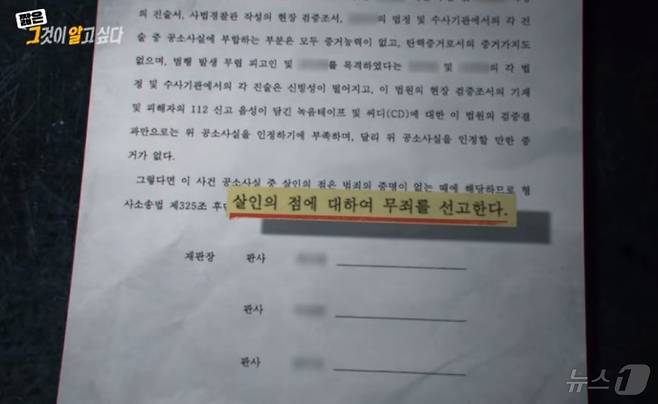 짧은
그것이 알고싶다
의 진술서, 사법경찰관 작성의 현장 검증조서, 의 법정 및 수사기관에서의 각 진
술 중 공소사실에 부합하는 부분은 모두 증거능력이 없고, 탄핵증거로서의 증거가치도
없으며, 범행 발생 무렵 피고인 및 를 목격하였다는 및 의 각 법
정 및 수사기관에서의 각 진술은 신빙성이 떨어지고, 이 법원의 현장 검증조서의 기재
및 피해자의 112 신고 음성이 담긴 녹음테이프 및 씨디(CD)에 대한 이 법원의 검증결
과만으로는 위 공소사실을 인정하기에 부족하며, 달리 위 공소사실을 인정할 만한 증
거가 없다.
그렇다면 이 사건 공소사실 중 살인의 점은 범죄의 증명이 없는 때에 해당하므로 형
사소송법 제325조 후단 살인의 점에 대하여 무죄를 선고한다.
재판장 판사
판사
판사
뉴스1